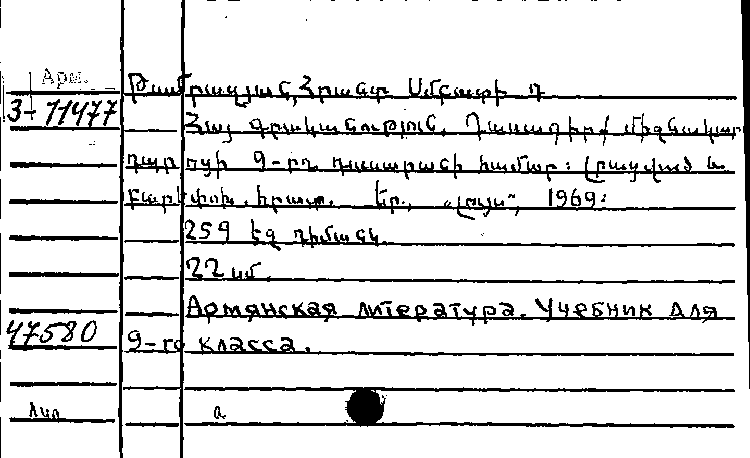 Арм.
3-11477
Թամրազյան, Հրանտ Սմբատի
Հայ գրականություն. Դասագիրք միջնակարգ
դպրոցի 9-րդ դասարանի համար: Լրացված և
բարեփոխ. հրատ. Եր., „Լույս“, 1969:
259 էջ դիմանկ.
22 սմ.
Армянская литература. Учебник для
47580
9-го класса.
а